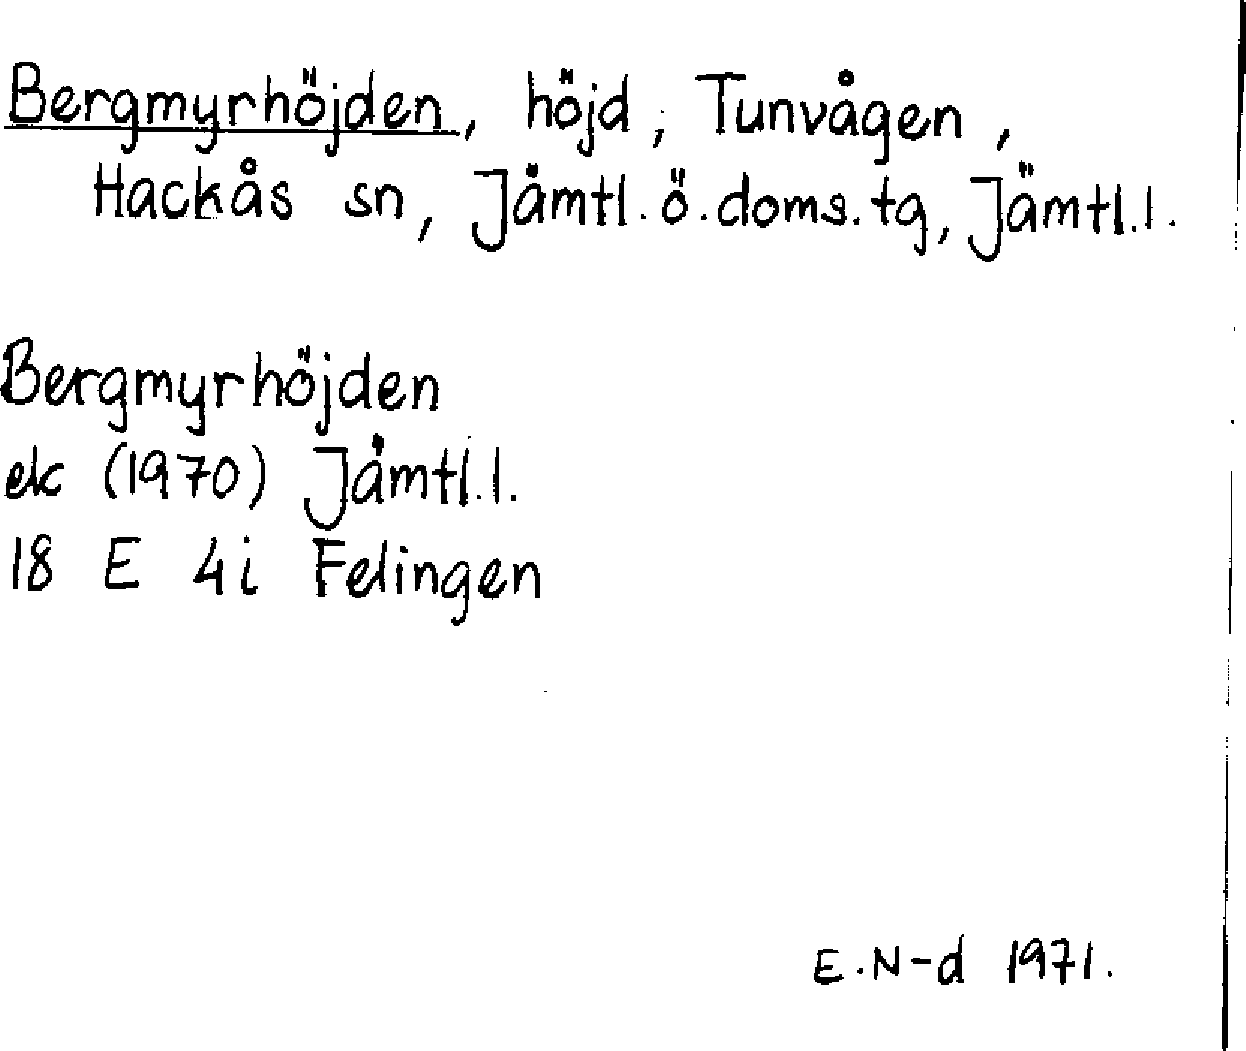 Bergmyrhöjden, höjd, Tunvågen,
Hackås sn, Jämtl. ö. doms. tg, Jämtl. l.
Bergmyrhöjden
ek (1970) Jämtl. l.
18 E 4i Felingen
E. N-d 1971.